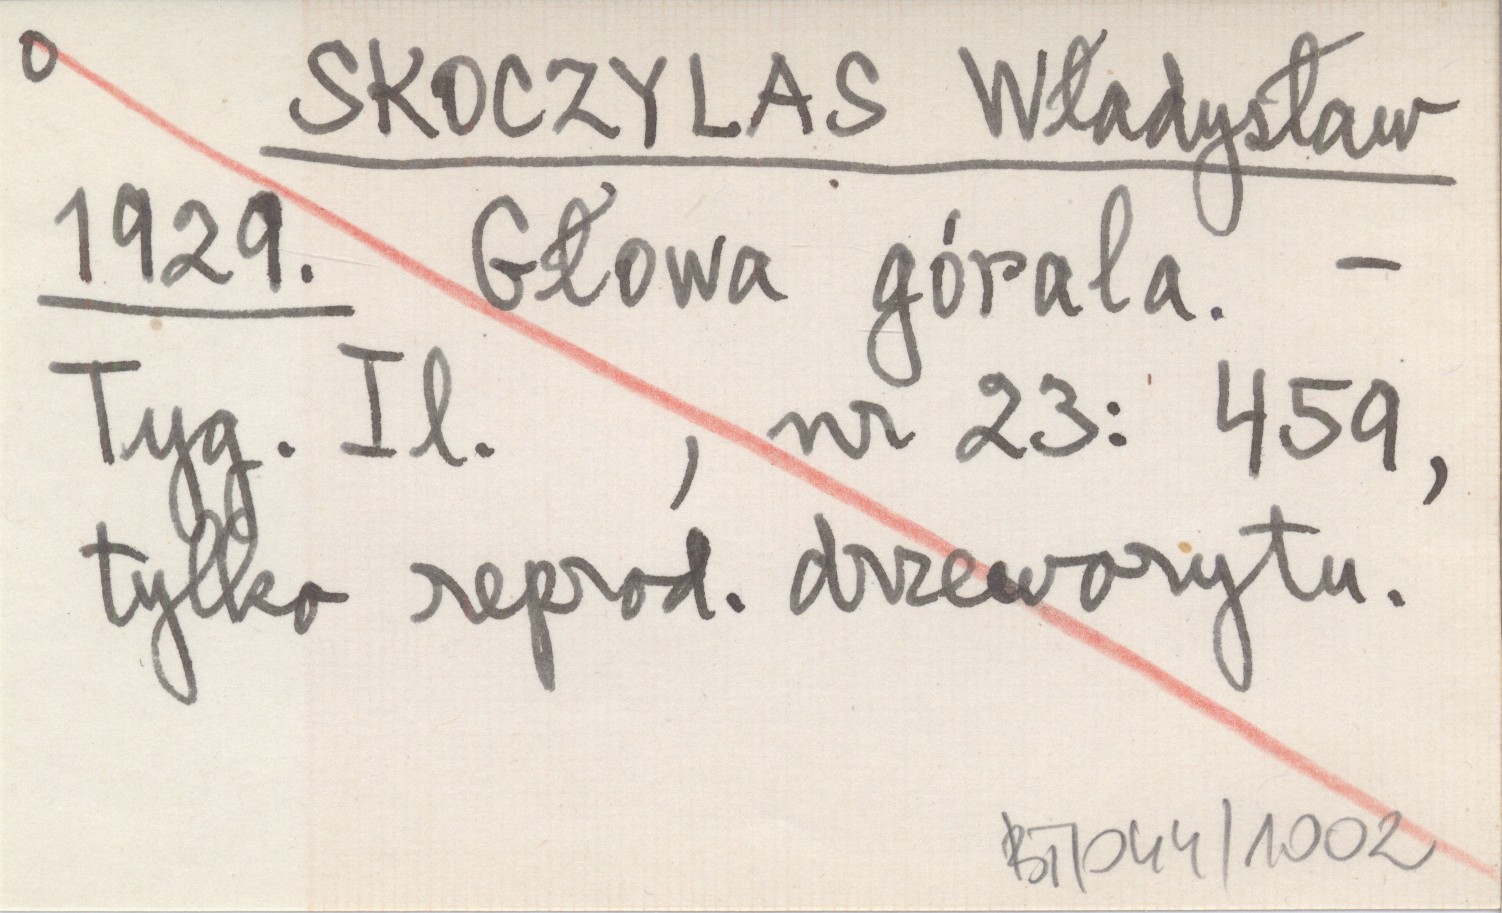 o SKOCZYLAS Władysław
1929. Głowa górala. -
Tyg. Il. , nr 23: 459,
tylko reprod. drzeworytu.
BT/044/1002